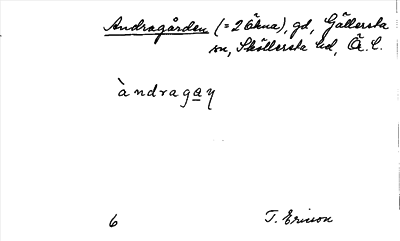 Andragården (=2 Ökna), gd, Gällersta
sn, Sköllersta hd, Ö. L.
àndraga̲η
6 T. Ericson